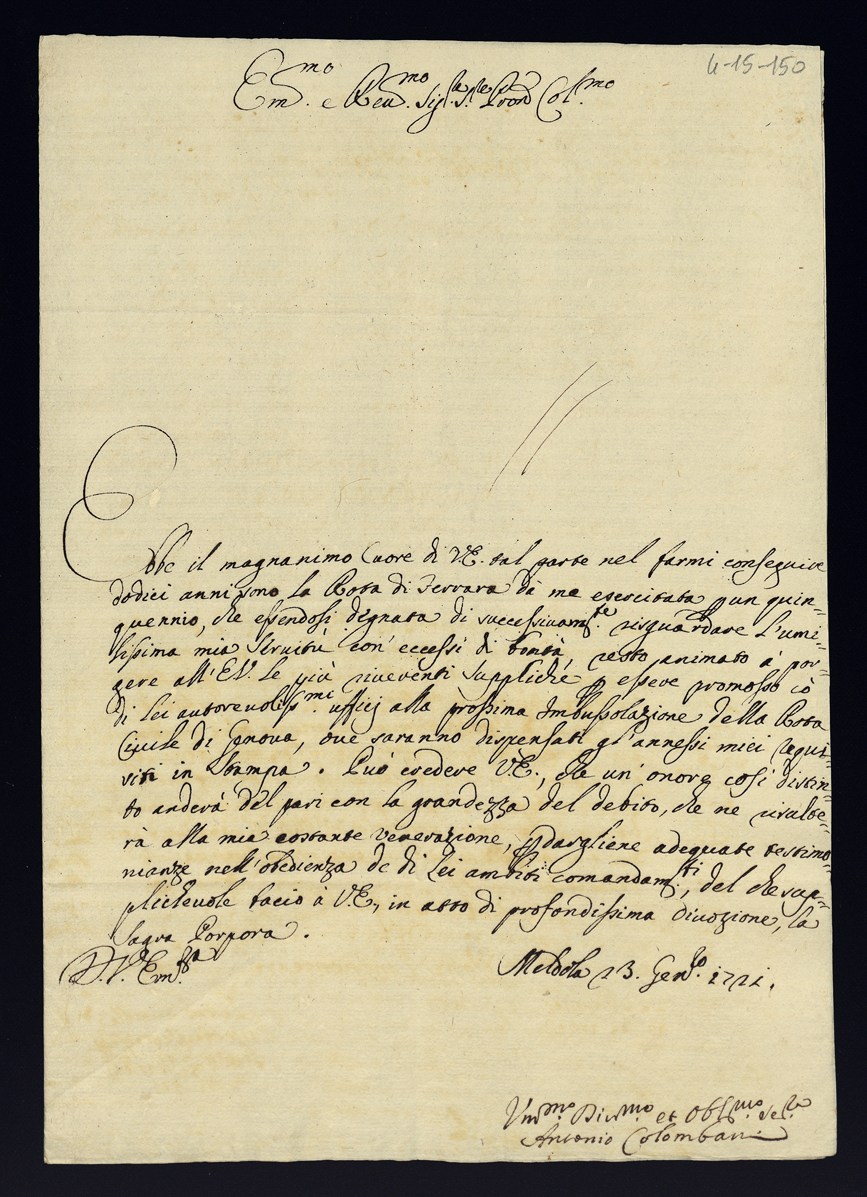 4-15-150
Em.mo e Reu.mo Sig.re S.re Pron Col.mo
Ebbe il magnanimo Cuore di V.E. tal parte nel farmi conseguire
dodici anni sono la Rota di Ferrara dà me esercitata p un quin=
quennio, che essendosi degnata di successivam.te risguardare l'umi=
lissima mia Seruitù con' eccessi di bontà, resto animato à por=
gere all'E.V. le più riuerenti suppliche p essere promosso cò
di Lei autoreuoliss.mi ufficij alla prossima Imbussolazione della Rota
Ciuile di Genoua, oue saranno dispensati gl'annessi miei requi=
siti in stampa. Può credere V.E., che un' onore così distin=
to anderà del pari con la grandezza del debito, che ne risulte=
rà alla mia costante venerazione, p dargliene adequate testimo=
nianze nell'obedienza de di Lei ambiti comandam.ti, del che sup=
plicheuole bacio à V.E., in atto di profondissima diuozione, la
Sagra Porpora.
D. V. Em.za
Meldola 23. Gen.ro 1721.
Vm.mo Diu.mo et Obl.mo Se.re
Antonio Colombani